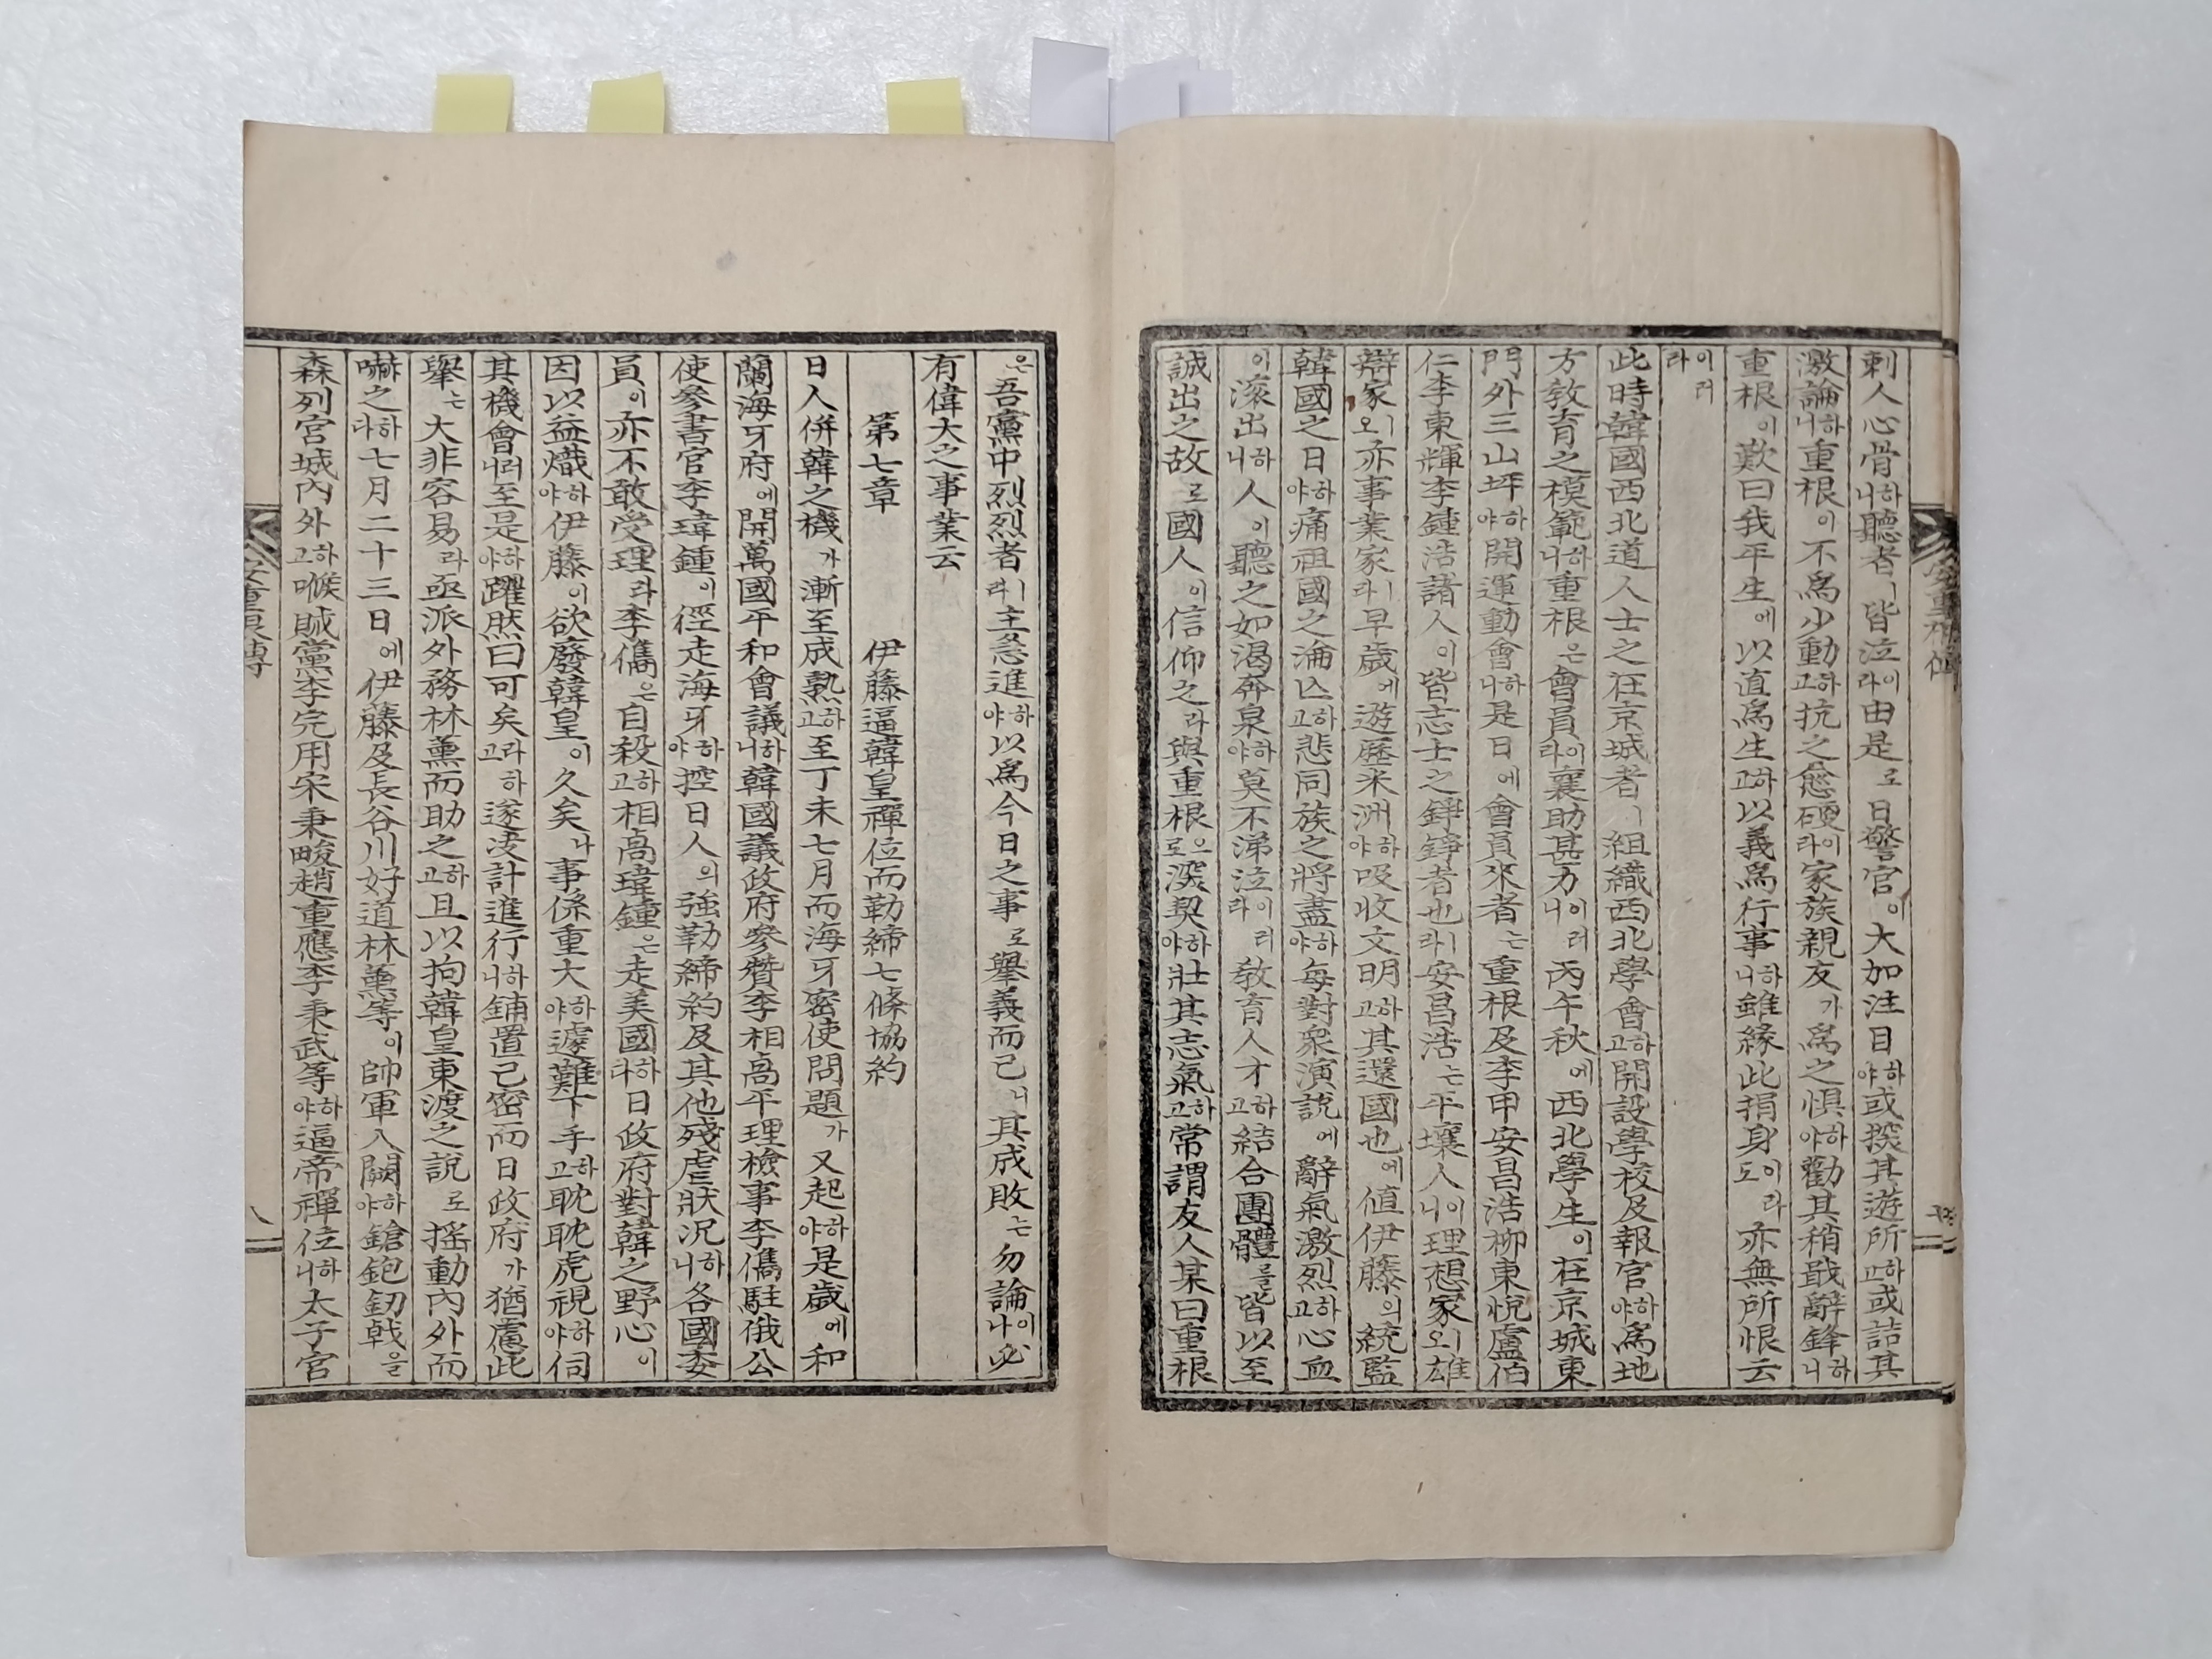 刺人心骨하니聽者ㅣ皆泣이라由是로日警官이大加注目하야或探其遊所하고或詰其
激論하니重根이不爲少動하고抗之愈硬이라家族親友가爲之懼하야勸其稍戢辭鋒하니
重根이歎曰我平生에以直爲生하고以義爲行事하니雖緣此捐身이라도亦無所恨云
이러라
此時韓國西北道人士之在京城者ㅣ組織西北學會하고開設學校及報官하야爲地
方敎育之模範하니重根은會員이라襄助甚力이러니丙午秋에西北學生이在京城東
門外三山坪하야開運動會하니是日에會員來者는重根及李甲安昌浩柳東悅盧伯
仁李東輝李鍾浩諸人이皆志士之錚錚者也ㅣ라安昌浩는平壤人이니理想家ㅣ오雄
辯家ㅣ오亦事業家ㅣ라早歲에遊歷米洲하야吸收文明하고其還國也에値伊藤의統監
韓國之日하야痛祖國之淪亾하고悲同族之將盡하야每對衆演說에辭氣激烈하고心血
이滚出하니人이聽之如渴奔泉하야莫不涕泣이러라敎育人才하고結合團體를皆以至
誠出之故로國人이信仰之라與重根으로深契하야壯其志氣하고常謂友人某曰重根
安重根傳
은吾黨中烈烈者ㅣ라主急進하야以爲今日之事로擧義而已니其成敗는勿論이나必
有偉大之事業云
第七章 伊藤逼韓皇禪位而勒締七條協約
日人倂韓之機가漸至成熟하고至丁未七月而海牙密使問題가又起하야是歲에和
蘭海牙府에開萬國平和會議하니韓國議政府參贊李相卨平理檢事李儁駐俄公
使參書官李瑋鍾이徑走海牙하야控日人의強勒締約及其他殘虐狀況하니各國委
員이亦不敢受理라李儁은自殺하고相卨瑋鍾은走美國하다日政府對韓之野心이
因以益熾하야伊藤이欲廢韓皇이久矣나事係重大하야遽難下手하고耽耽虎視하야伺
其機會러니至是하야躍然曰可矣라하고遂決計進行하니鋪置已密而日政府가猶慮此
擧는大非容易라亟派外務林薰而助之하고且以拘韓皇東渡之說로搖動內外而
嚇之하다七月二十三日에伊藤及長谷川好道林薰等이帥軍入闕하야鎗鉋釰戟을
森列宮城內外하고喉賊黨李完用宋秉畯趙重應李秉武等하야逼帝禪位하니太子宮
安重根傳
八